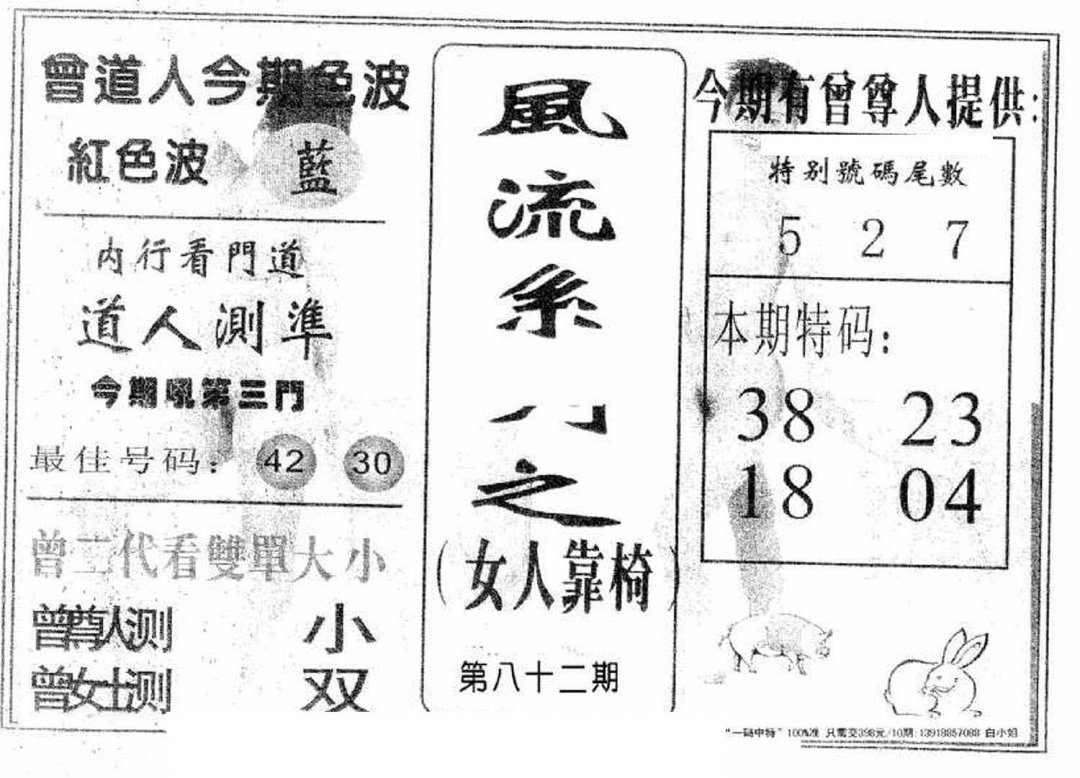 曾道人今期色波
紅色波 藍
内行看門道
道人測準
今期吼第三門
最佳号码： 42 30
曾二代看雙單大小
曾尊人测 小
曾女士测 双
風流系列之
（女人靠椅）
第八十二期
今期有曾尊人提供：
特别號碼尾數
5 2 7
本期特码：
38 23
18 04
“一码中特”100%准 只需交398元/10期：13918857088 白小姐